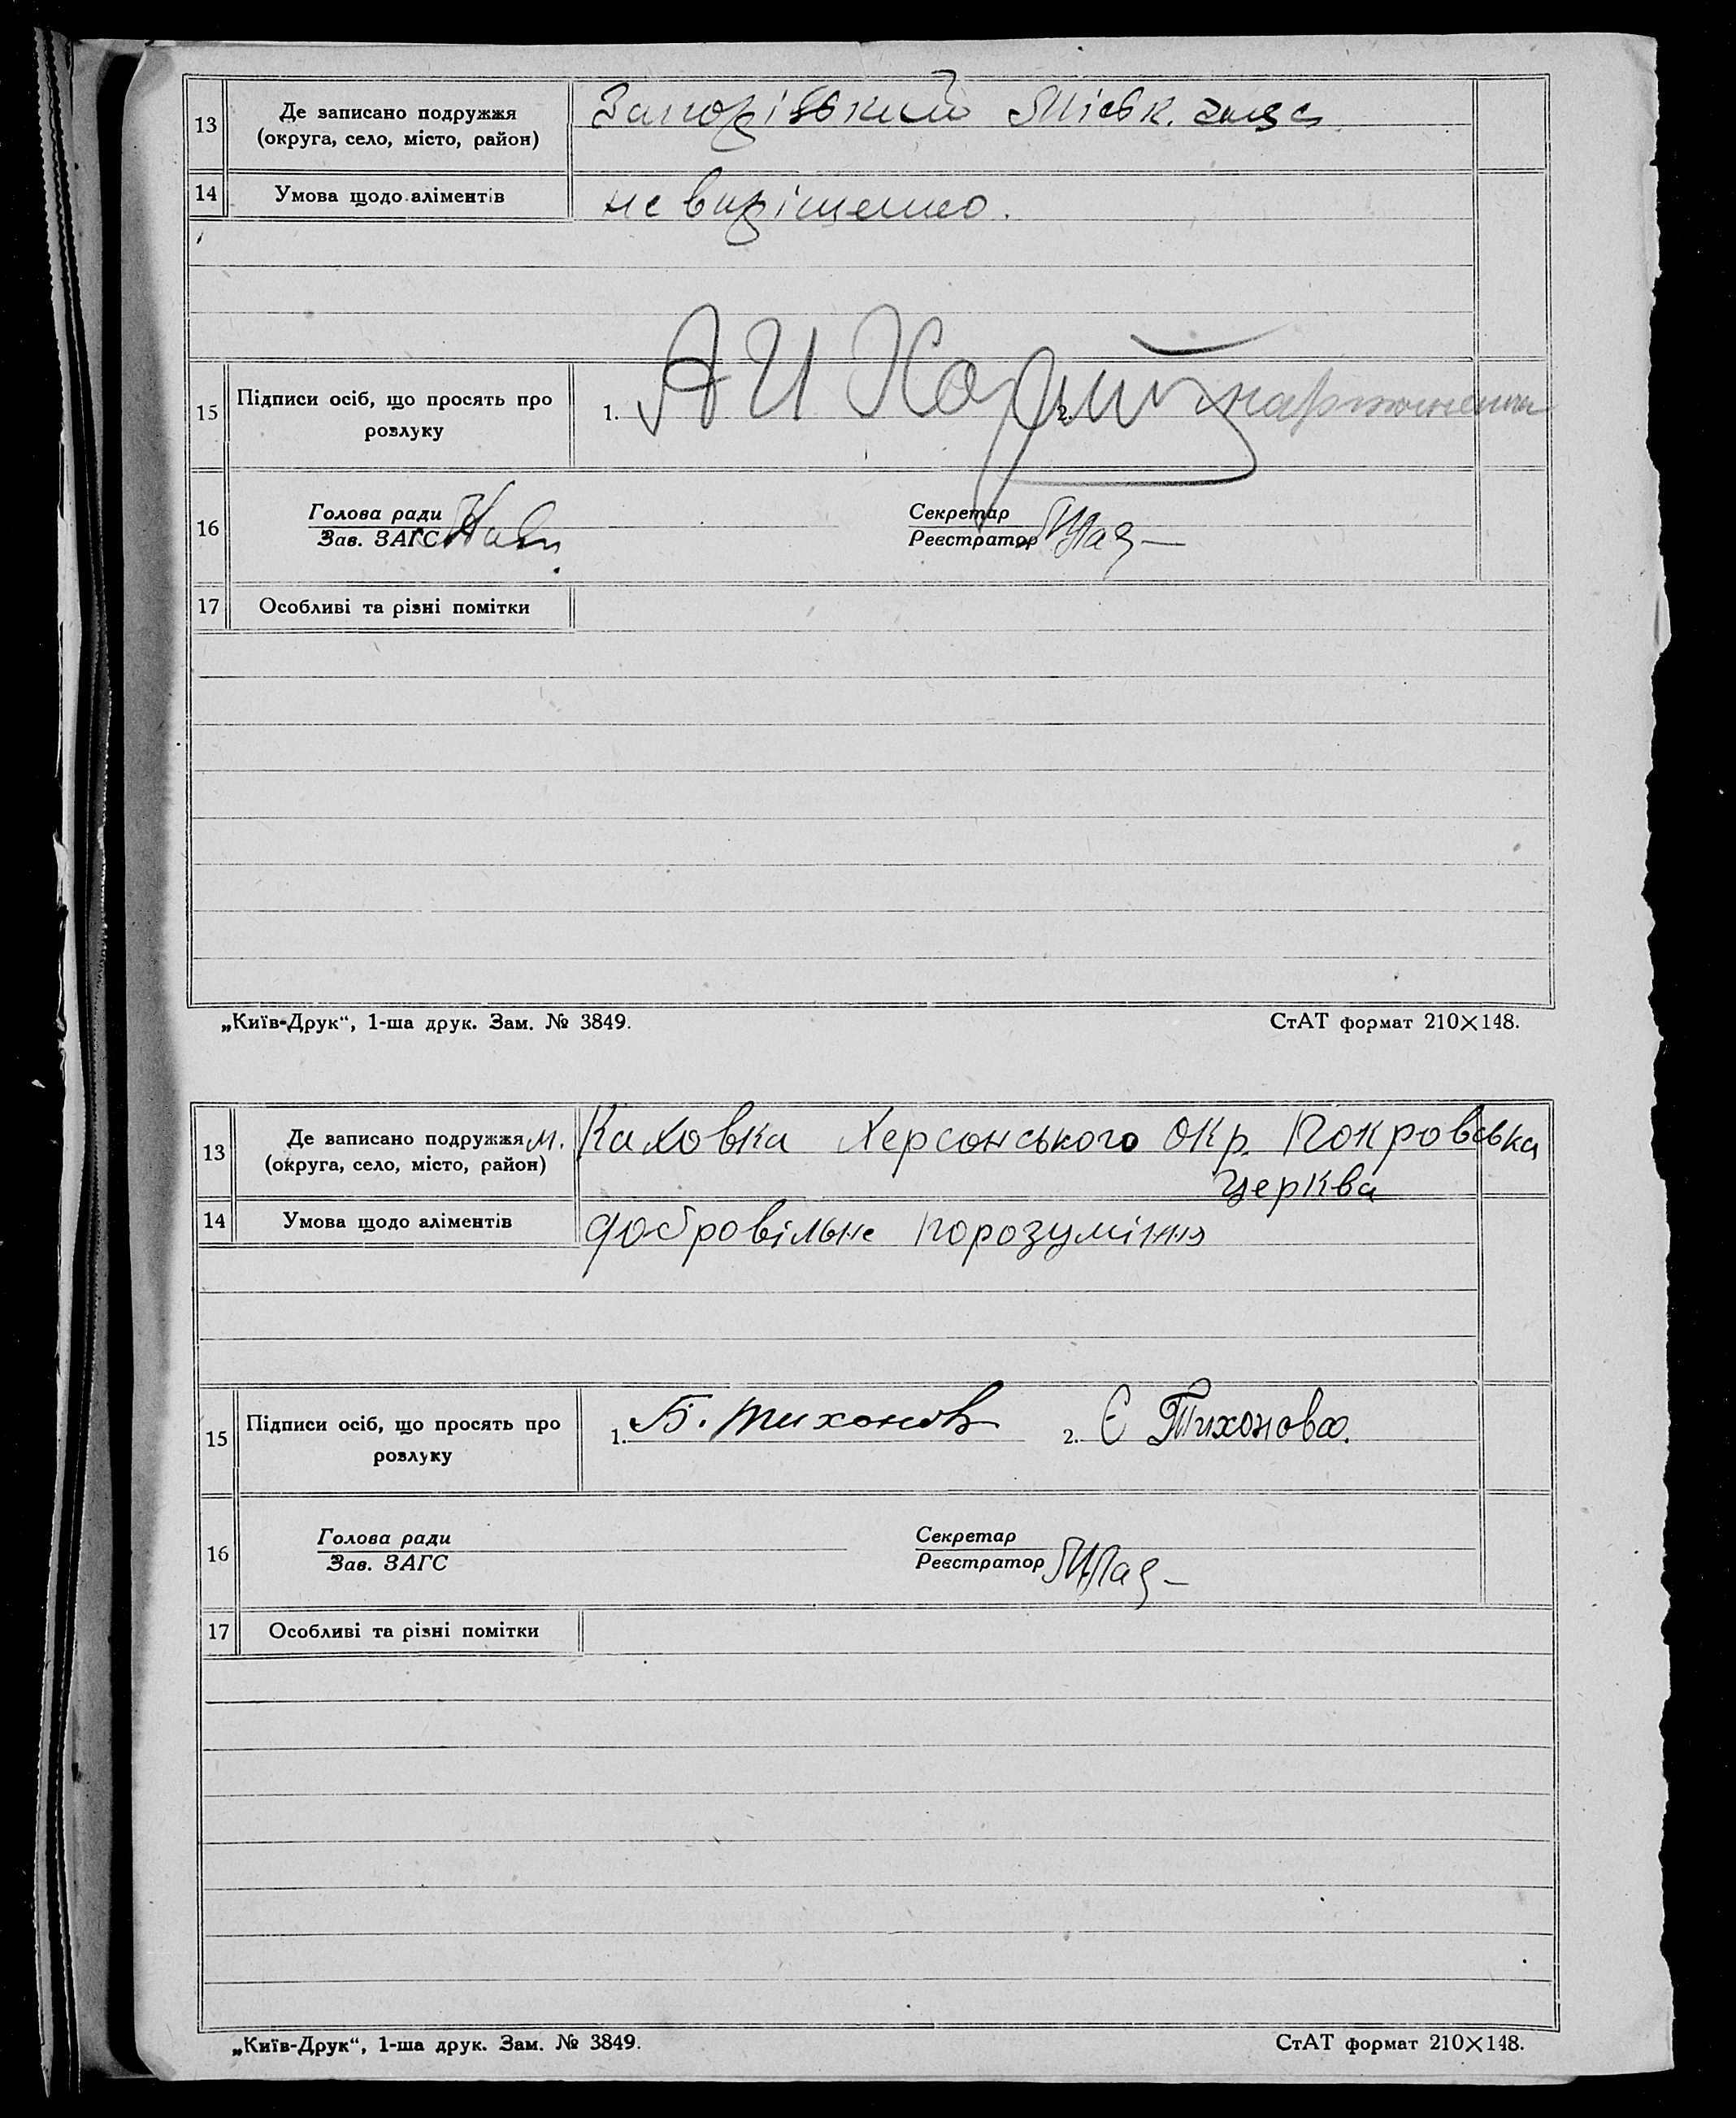 13
Де записано подружжя
(округа, село, місто, район)
Запорізький Міськ. загс
14
Умова щодо аліментів
не вирішено.
15
Підписи осіб, що просять про
розлуку
1. А И
2.
16
Голова ради
Зав. ЗАГС
Секретар
Реєстратор
17
Особливі та різні помітки
„Київ-Друк“, 1-ша друк. Зам. № 3849.
СтАТ формат 210×148.
13
Де записано подружжя
(округа, село, місто, район)
м. Каховка Херсонського окр. Покровська
церква
14
Умова щодо аліментів
добровільне порозуміння
15
Підписи осіб, що просять про
розлуку
1. Б. Тихонов
2. Є Тихонова.
16
Голова ради
Зав. ЗАГС
Секретар
Реєстратор
17
Особливі та різні помітки
„Київ-Друк“, 1-ша друк. Зам. № 3849.
СтАТ формат 210×148.